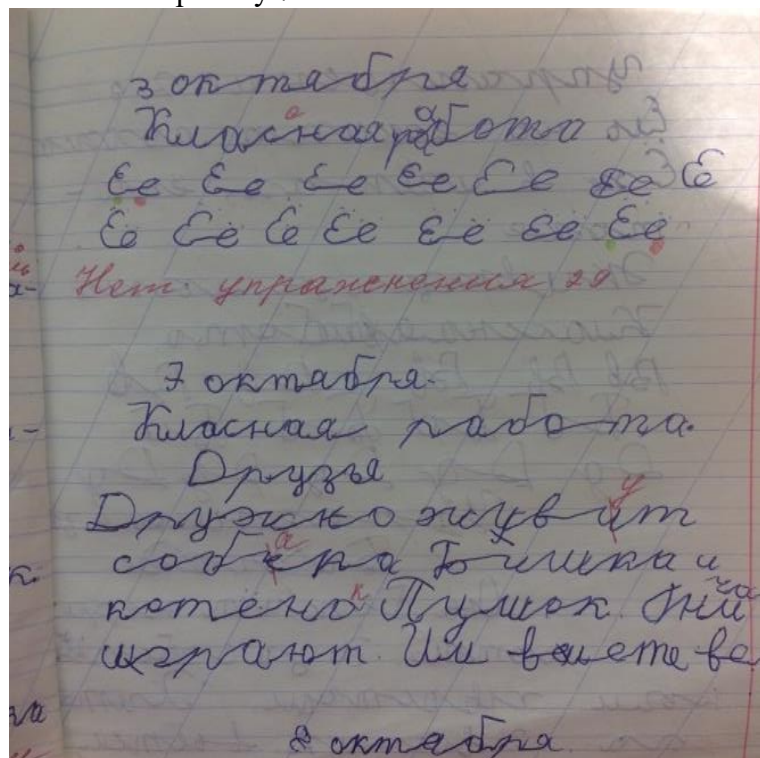 3 октября
Класная работа
Ее Ее Ее Ее Ее Ее Ё
Ёё Ёё Ёё Ёё Ёё Ёё Ёё
Нет упражнения 29
7 октября.
Класная работа.
Друзья
Дружно живит
у
собека
а
и
котёно Пушок.
к
ча
играют. Им вместе ве
8 октября.